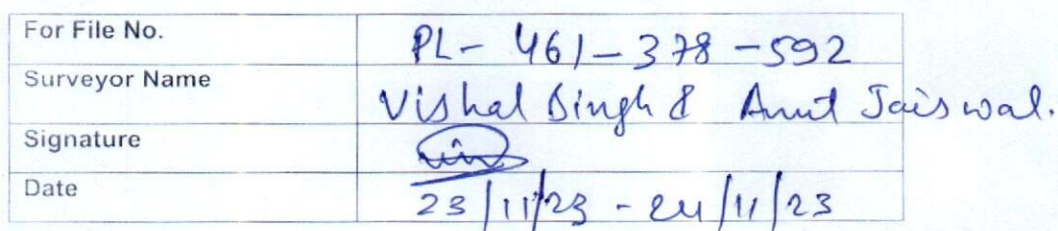 For File No. PL- 461-378-592
Surveyor Name Vishal Singh & Amit Jaiswal.
Signature
Date 23/11/23 - 24/11/23